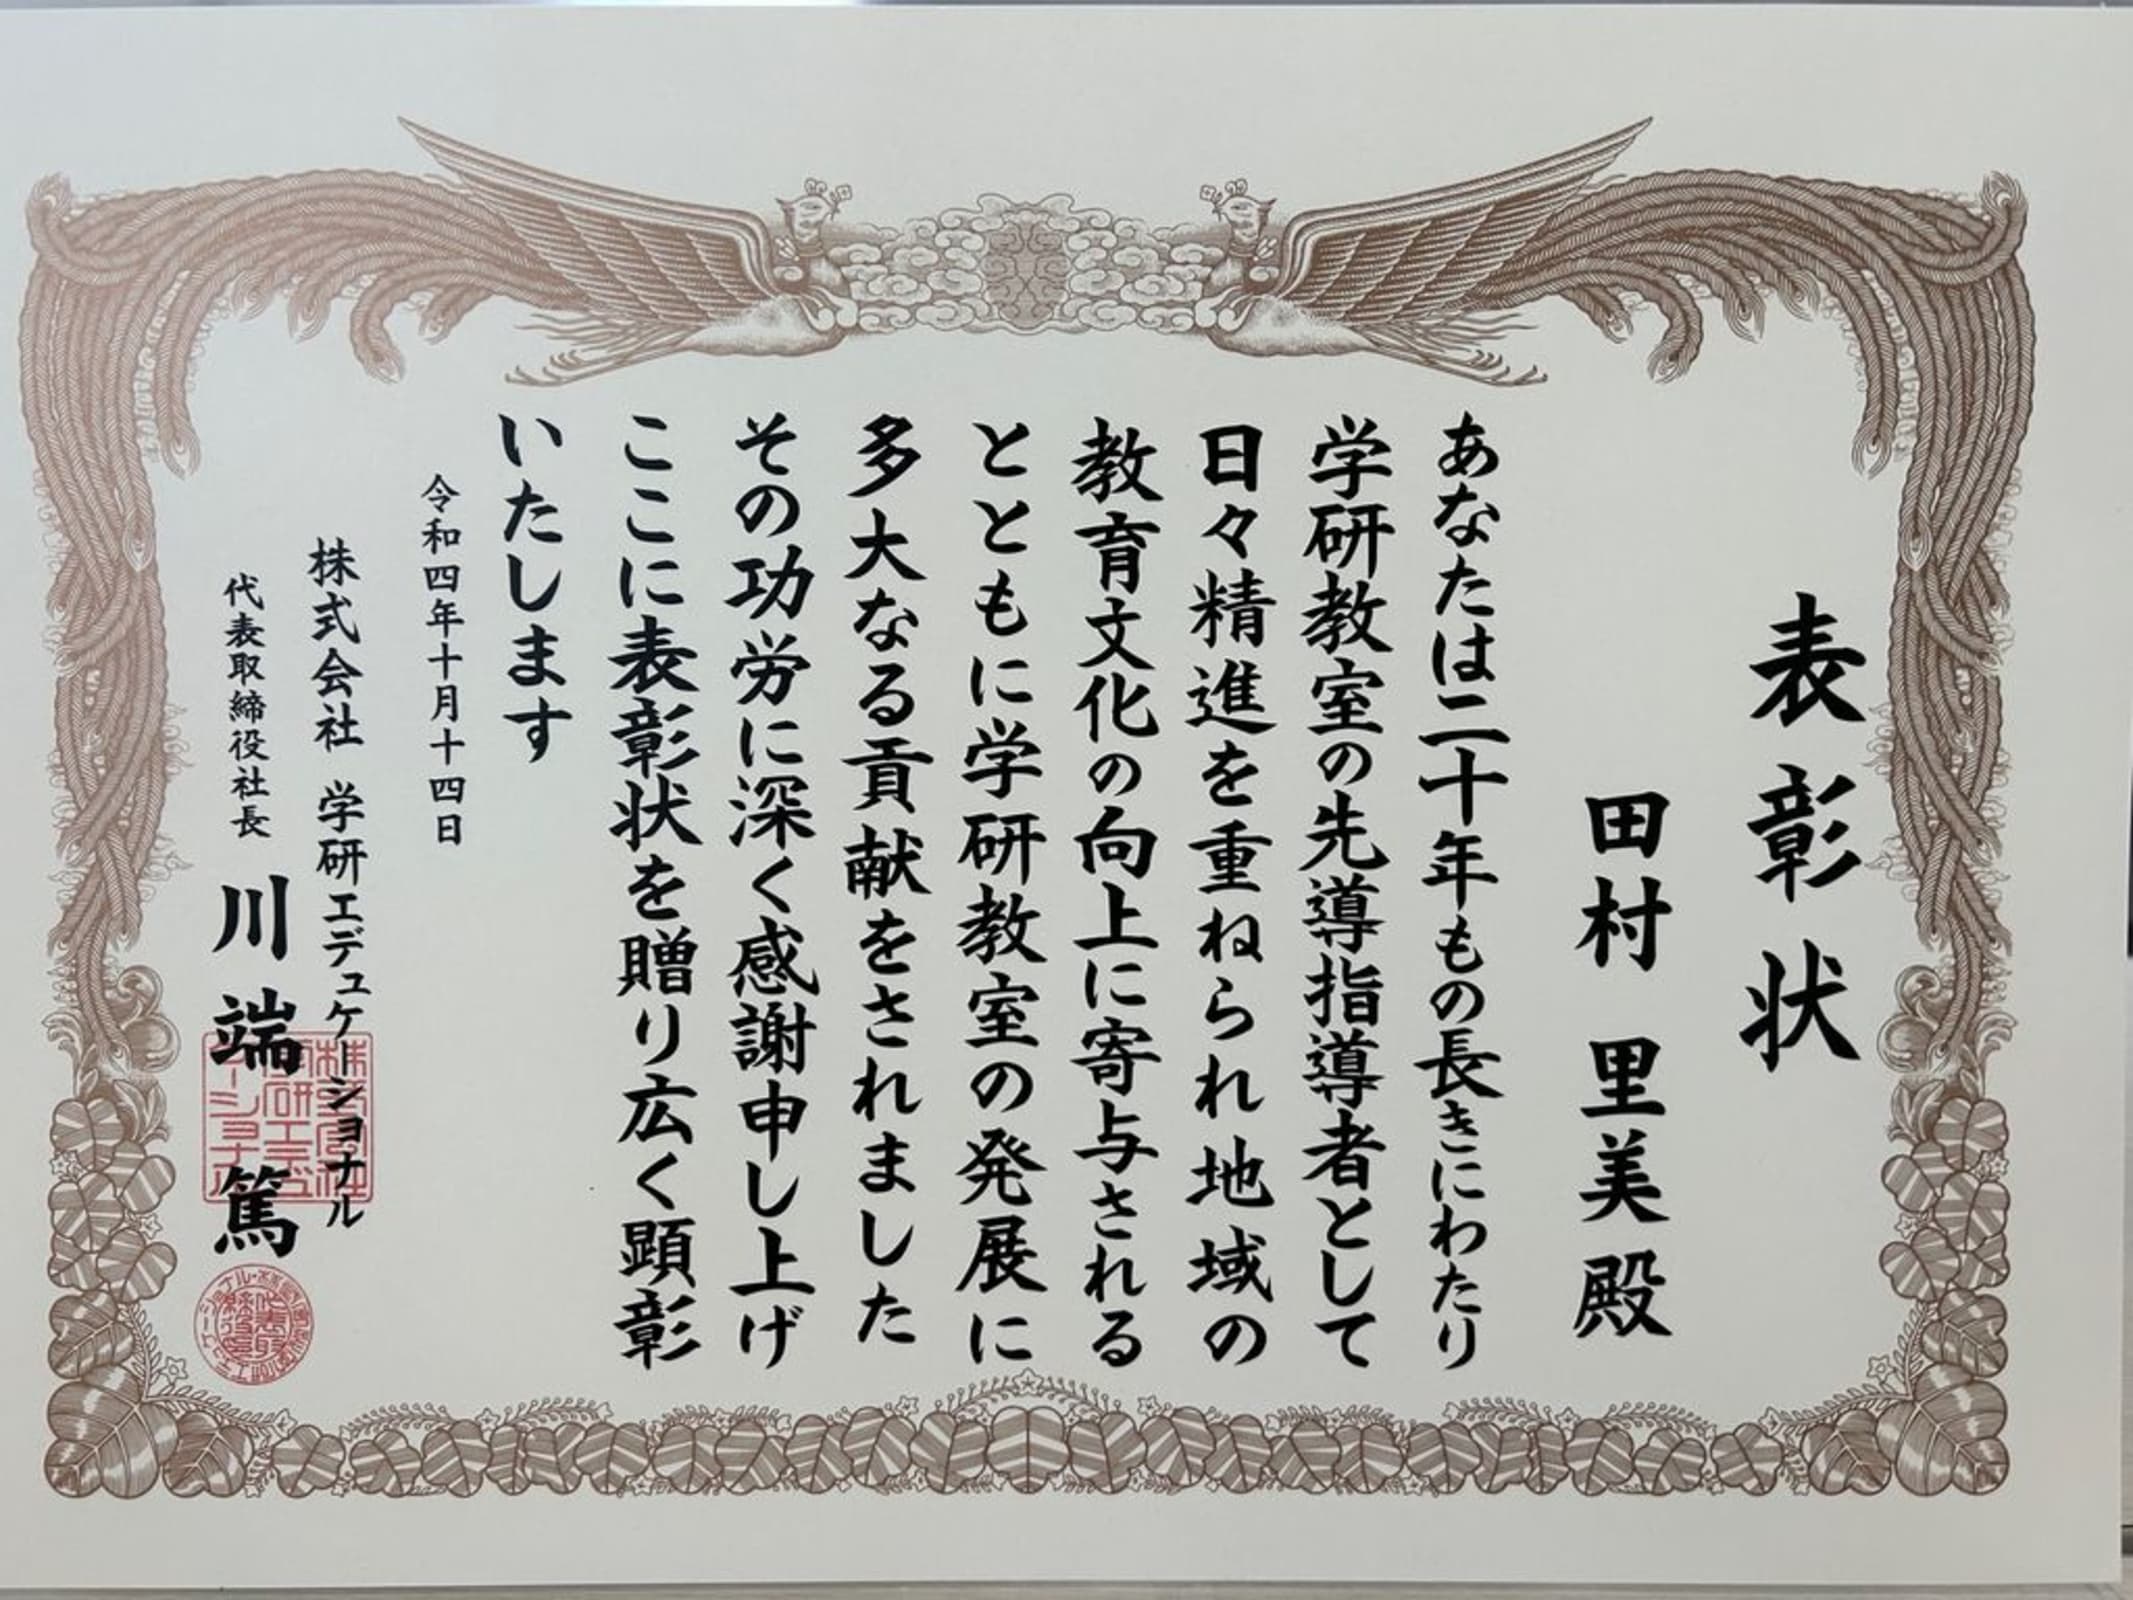 表彰状
田村 里美 殿
あなたは二十年もの長きにわたり
学研教室の先導指導者として
日々精進を重ねられ地域の
教育文化の向上に寄与される
とともに学研教室の発展に
多大なる貢献をされました
その功労に深く感謝申し上げ
ここに表彰状を贈り広く顕彰
いたします
令和四年十月十四日
株式会社 学研エデュケーショナル
代表取締役社長 川端 篤